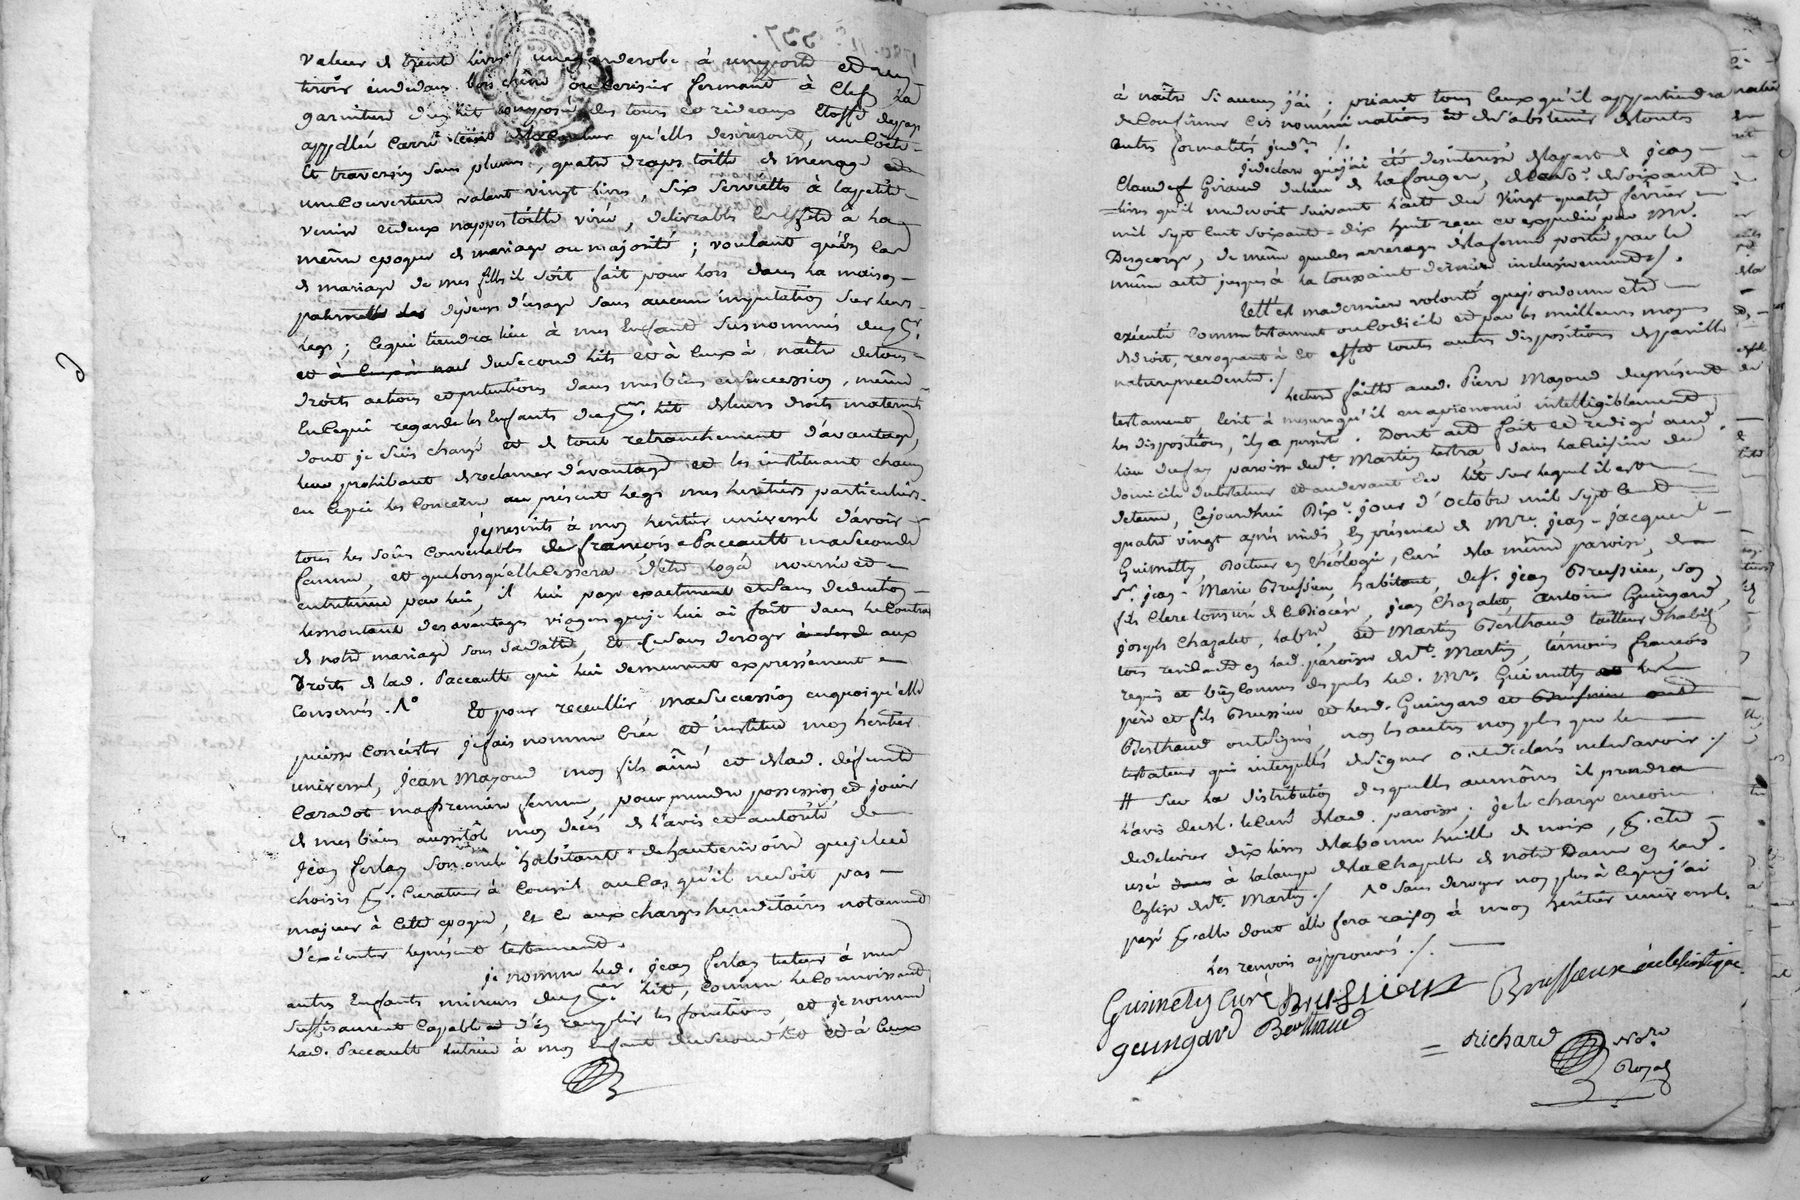 valeur de trente livres une garderobe à une porte et un
tiroir endedans bois chêne ou cerisier fermant à clef la
garniture d'un lit composée des tours et rideaux étoffe du pay
appellée carré de la couleur qu'elles desireront, un loete
et traversin sans plumes, quatre draps toille de menage
une couverture valant vingt livres, six serviettes à la petite
venise et deux nappes toille virée, délivrables à la
même epoque de mariage ou majorité ; voulant qu'en cas
de mariage de mes filles il soit fait pour lors dans la maison
paternelle les dépens d'usage sans aucune imputation sur leurs
legs ; ce qui tiendra lieu à mes enfants susnommés du per.
et à ceux à du second lits et à ceux à naître de tous
droits actions et pretentions dans mes biens et succession, même
en ce qui regarde les enfants du per. lit de leurs droits maternels
dont je suis chargé et de tout retranchement d'avantage,
leur prohibant de reclamer d'avantage et les instituant chacun
en ce qui les concerne au présent legs mes heritiers particuliers.
Je prescrits à mon heritier universel d'avoir
tous les soins convenables de françoise Paccault ma seconde
femme, et que lorsqu'elle cessera d'être logée nourrie et
entretenue par lui, il lui paye exactement et sans deduction
le montant des avantages viagers que je lui ai fait dans le contrat
de notre mariage sous sa datte, et sans deroger aux
droits de lad. Paccault qui lui demeurent expressement
conservés. N°       Et pour receuillir ma succession en quoi qu'elle
puisse concister je fais nomme crée et institue mon heritier
universel, Jean Mazoud mon fils aîné et de lad. défunte
Caradot ma premiere femme, pour prendre possession et jouir
de mes biens aussitôt mon décès de l'avis et autorité de
Jean ferlay son oncle habitant de hauterivoire que je lui
choisis pr. curateur à conseil au cas qu'il ne soit pas
majeur à cette epoque, et ce aux charges hereditaires notamment
d'exécuter le présent testament.
je nomme led. jean ferlay tuteur à mes
autres enfants mineurs du per. lit, comme le connoissant
suffisament capable d'en remplir les fonctions, et je nomme
lad. Paccault tutrice à mon enfant du second lit et à ceux
à naître si aucun j'ai ; priant tous ceux qu'il appartiendra
de confirmer ces nominations et de s'abstenir de toutes
autres formalités judres ./.
je déclare que j'ai été desinteressé de la part de jean
Claude Giraud du lieu de la fougere, de la so. de soixante
livres qu'il me devoit suivant l'acte du vingt quatre février
mil sept cent soixante-dix huit reçu et expedié par Me.
Desgeorge, de même que des arrerages de la ferme portée par le
même acte jusques à la toussaint derniere inclusivement ./.
telle est ma derniere volonté que j'ordonne être
exécuté comme testament ou codicile et par les meilleurs moyens
de droit, revoquant à cet effet toutes autres dispositions de pareille
nature precedentes ./
lecture faitte aud. Pierre Mazoud du présent
testament écrit à mesure qu'il en a prononcé intelligiblement
les dispositions, il y a persisté. Dont acte fait et redigé aud.
lieu du fay paroisse de St. Martin lestra dans la cuisine du
domicile du testateur et au devant du lit sur lequel il est
detenu, cejourdhui Dixe. jour d'octobre mil sept cent
quatre vingt après midi, en présence de Mre. jean-jacques
Guinetty, docteur en théologie, curé de la même paroisse, de
Sr. jean-Marie Brussieu, habitant, de Sr. jean Brussieu, son
fils clerc tonsuré de ce diocèse, jean Chazalet, antoine Guingard,
joseph Chazalet, labrs, et Martin Berthaud tailleur d'habits
tous residants en lad. paroisse de St. Martin, témoins françois
requis et bien connus desquels led. Mre. Guinetty les
père et fils Brussieu et led. Guingard et
Berthaud ont signé, non les autres non plus que le
testateur qui interpellés de signer ont déclaré ne le savoir ./
# sur la distribution desquelles aumônes il prendra
l'avis du sr. curé de lad. paroisse ; je le charge encore
de delivrer dix livres de la bonne huille de noix, pr. être
usée à la lampe de la chapelle de notre Dame en lad.
église de St. Martin ./ N° sans deroger non plus à ce que j'ai
payé pr. elle dont elle fera raison à mon heritier universel.
les renvois approuvés ./.
Guinetty Curé Brussieux Brussieux écclésiastique
geungard Berthaud
= Richard Nore.
Royal